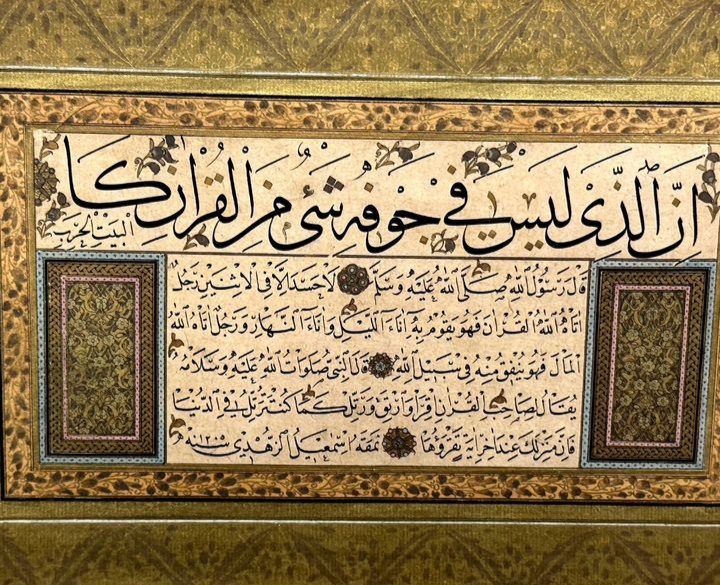 إن الذي ليس في جوفه شيء من القرآن كا
لبيت الخرب
قال رسول الله صلى الله عليه وسلم لا حسد إلا في الاثنين رجل
آتاه الله القرآن فهو يقوم به آناء الليل وآناء النهار ورجل آتاه الله
المال فهو ينفق منه في سبيل الله قال النبي صلوات الله عليه وسلامه
يقال لصاحب القرآن اقرأ وارتق ورتل كما كنت ترتل في الدنيا
فإن منزلك عند آخر آية تقرؤها نمقه اسمعيل الزهدي سنه ١٢٠٥